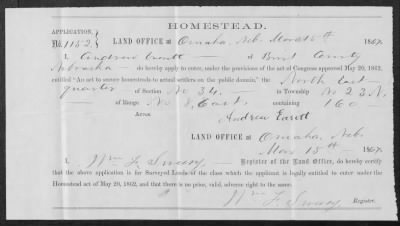 HOMESTEAD.
APPLICATION,
No. 1152.
LAND OFFICE at Omaha, Neb.
186
I, Andrew of Burt County
Nebraska do hereby apply to enter, under the provisions of the act of Congress approved May 20, 1862,
entitled "An act to secure homesteads to actual settlers on the public domain," the North East
quarter of Section No 34, in Township No 23 N.
of Range No 8, East, containing 160
Acres.
Andrew
LAND OFFICE at Omaha, Neb.
15th 186
I, Wm Register of the Land Office, do hereby certify
that the above application is for Surveyed Lands of the class which the applicant is legally entitled to enter under the
Homestead act of May 20, 1862, and that there is no prior, valid, adverse right to the same.
Wm
Register.